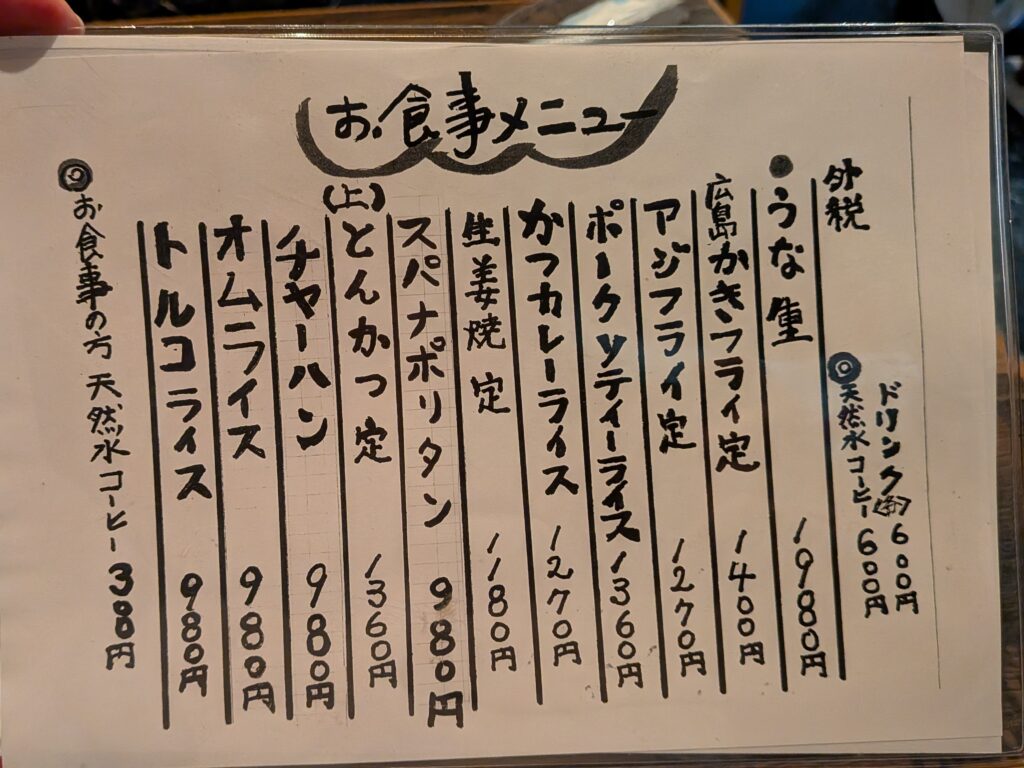 お食事メニュー
ドリンク 600円
◎天然水コーヒー 600円
外税
●うな重 1980円
広島かきフライ定 1400円
アジフライ定 1270円
ポークソティーライス 1360円
かつカレーライス 1270円
生姜焼定 1180円
スパナポリタン 980円
(上)とんかつ定 1360円
チャーハン 980円
オムライス 980円
トルコライス 980円
◎お食事の方 天然水コーヒー 300円